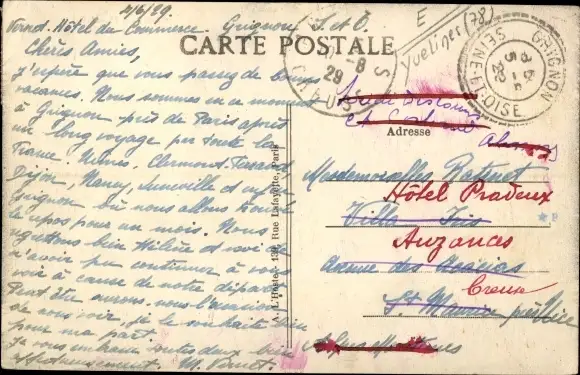 4/6/29.
Vornet. Hôtel du Commerce. Grignon S. et O.
CARTE POSTALE
E
Yvelines (78)
GRIGNON
SEINE-ET-OISE
29
Adresse
Chères Amies,
J'espère que vous passez de bonnes
vacances. Nous sommes en ce moment
à Grignon près de Paris après
un long voyage par toute la
France. Nîmes, Clermont-Ferrand
Dijon, Nancy, Luneville et enfin
Grignon où nous allons
le repos pour un mois. Nous
bien et moi de
n'avoir pu continuer à vous
voir à cause de notre départ
Peut être aurons-nous l'occasion
de vous voir, je le souhaite bien
pour ma part.
Je vous embrasse toutes deux bien
affectueusement. M.
L'Hoste, 139, Rue Lafayette, Paris
Mesdemoiselles
Hôtel Pradeux
Villa Iris
Auzances
Avenue des Acacias
Creuse
St Maurice près Nice
Alpes Maritimes